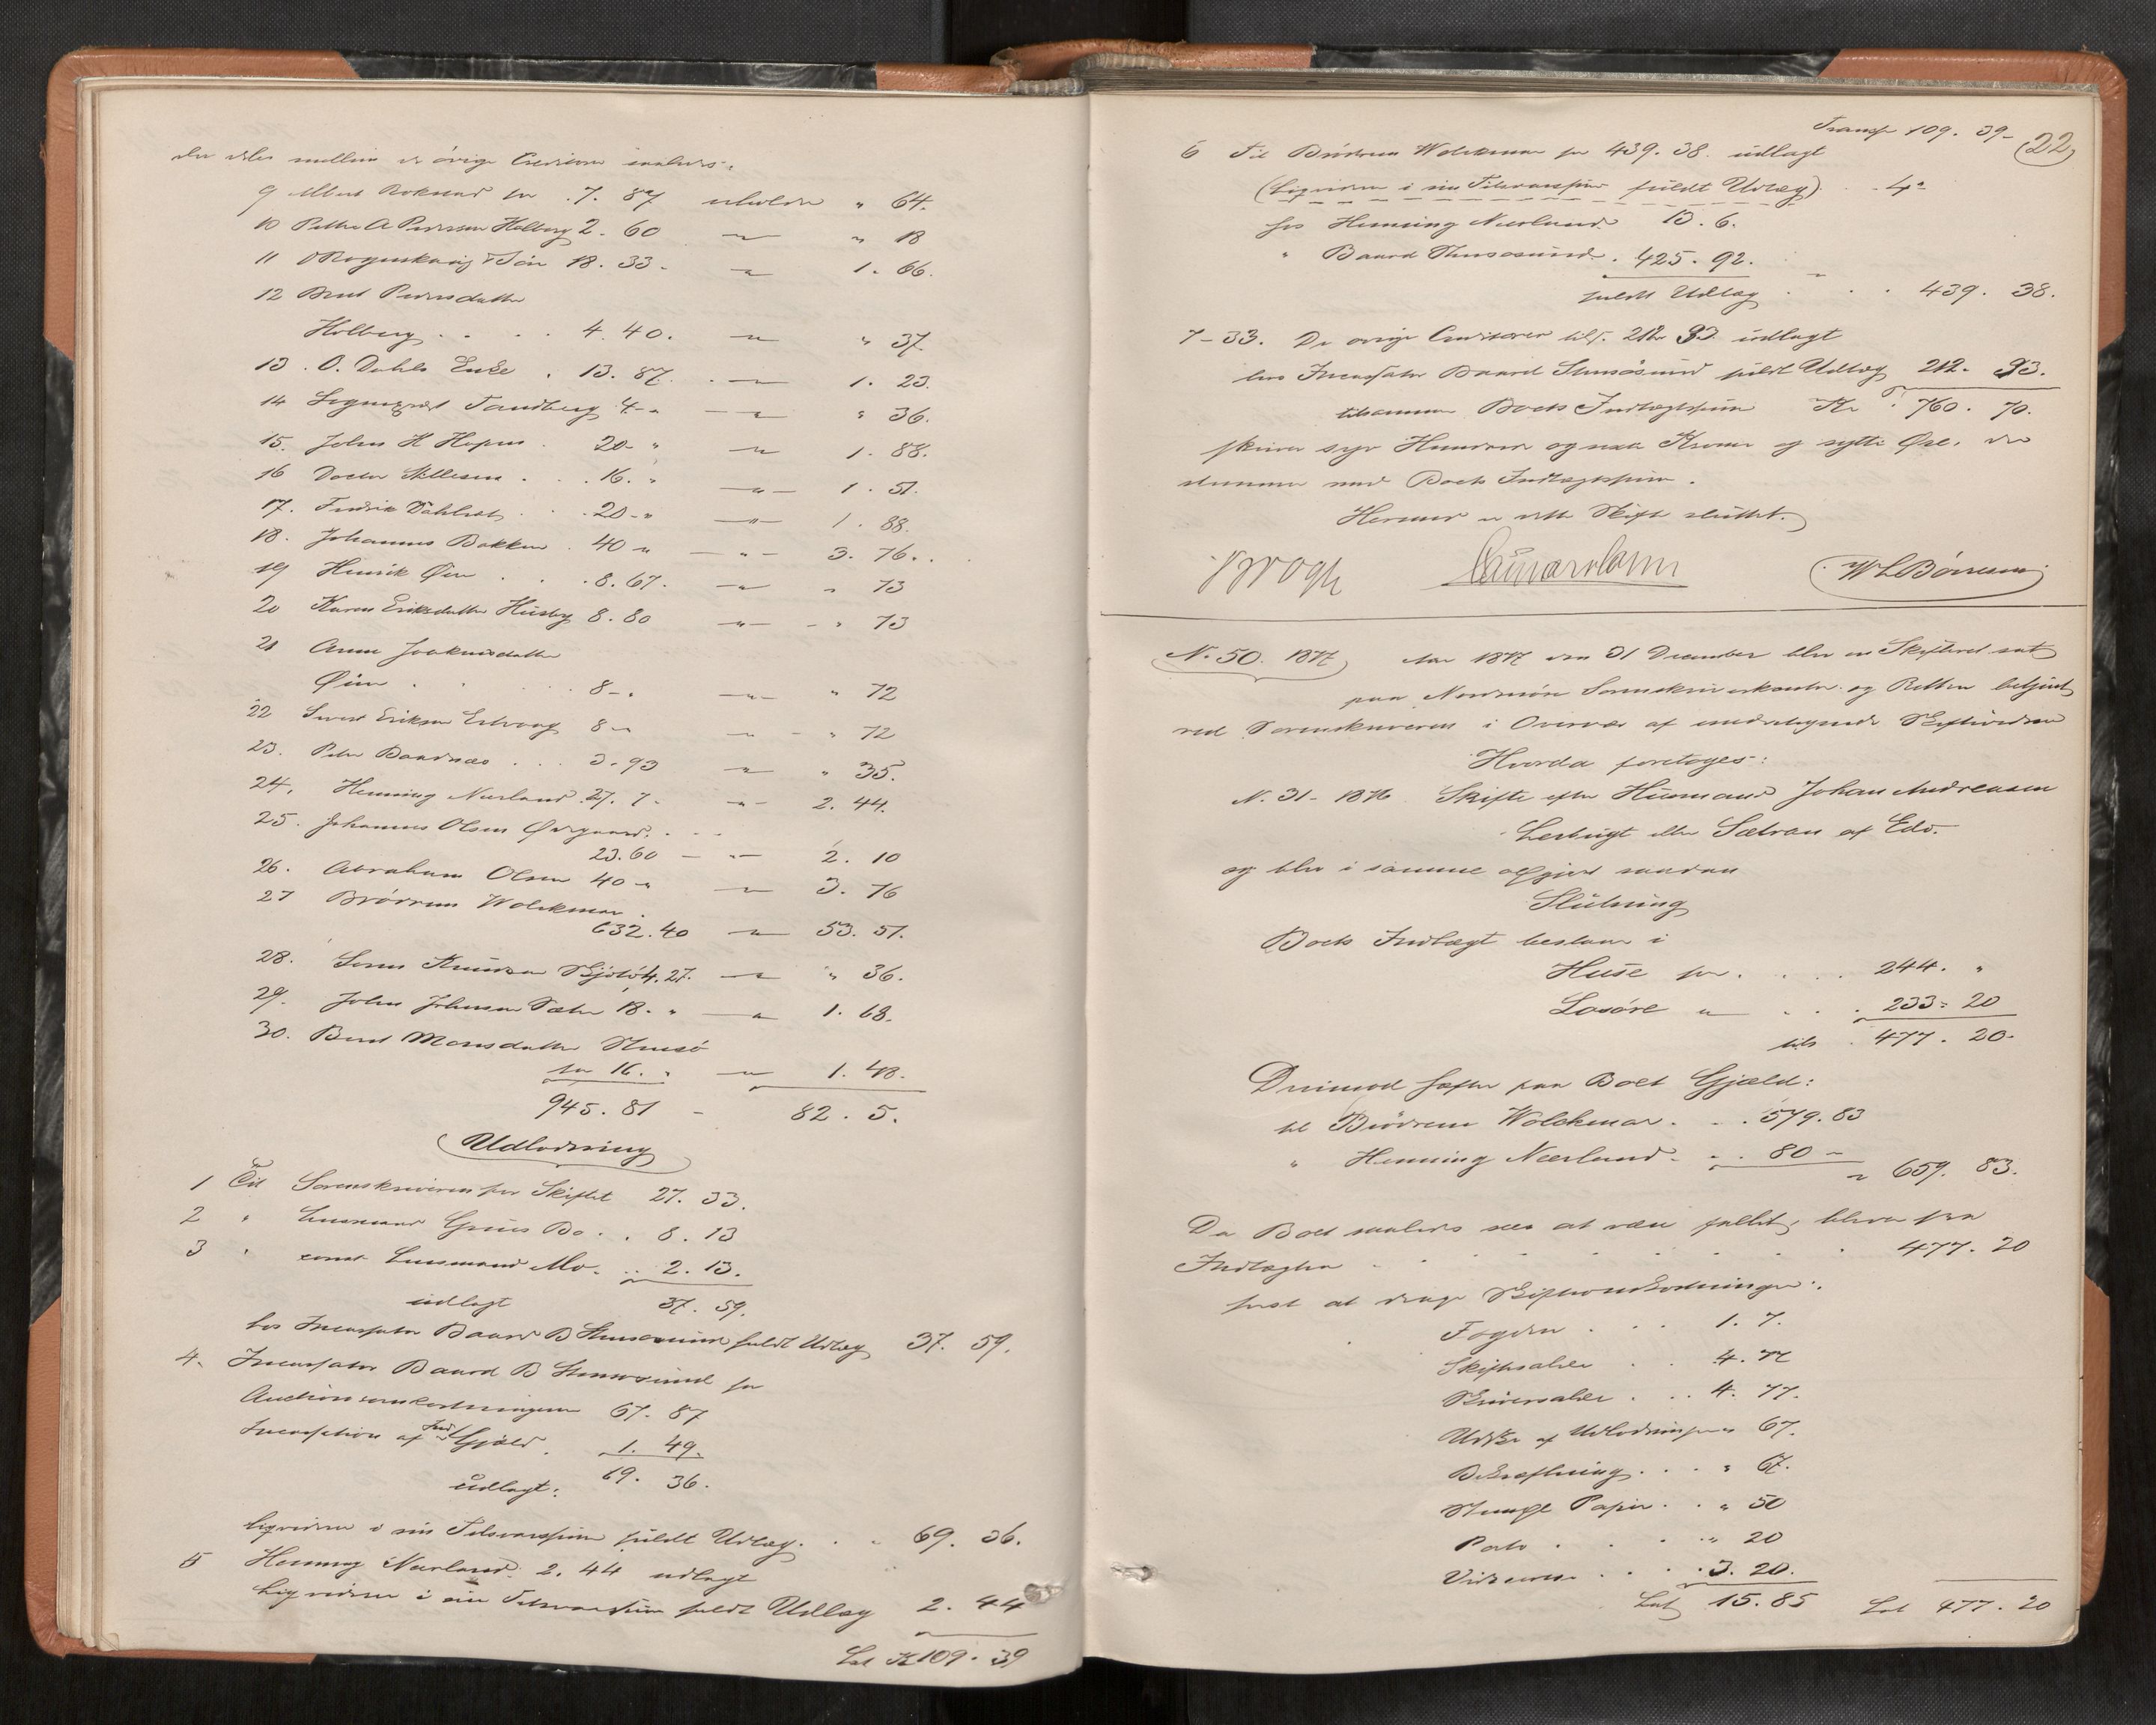 der deles mellem de øvrige Creditorer saaledes:
9 Albert Roksvad for 7. 87 erholder " 64.
10 Petter A Pedersen Holberg 2. 60 — " — " 18
11 O Rogenskaug & Søn 18. 33. — " — 1. 66.
12 Berit Pedersdatter
Holberg . . . . 4. 40. — " — " 37.
13. O. Dahls Enke . 13. 87. — " — 1. 23.
14 Sogneprest Sandberg 4 - " — " — " 36.
15. John H Hopen . 20 - " — " — 1. 88.
16 Doctor Stillesen . . 16. " — " — 1. 51.
17. Fredrik Dahlseth . . 20 - " — " — 1. 88.
18. Johannes Bakken . 40 " — " — 3. 76.
19 Henrik Øien . . . 8. 67. — " — " 73
20 Karen Eriksdatter Husby 8. 80 — " — " 73
21 Anne Joakimsdatter
Øien . . . . 8 - " — " — " 72
22 Sivert Eriksen Ertvaag 8 - " — " — " 72
23. Peter Baardnæs . . . 3. 93 — " — " 35.
24. Henning Neerland 27. 7 - — " — 2. 44.
25. Johannes Olsen Ødegaard. . .
23. 60 — " — 2. 10
26. Abraham Olsen 40 - " — " — 3. 76
27 Brødrene Wolckmar.
632. 40 — " — 53. 51.
28. Søren Knudsen 4. 27. — " — " 36.
29. John Johnsen Sæter 18. " — " — 1. 68.
30. Berit Monsdatter Stensø
for 16. " — " — 1. 48.
945. 81 - 82. 5.
Udlodning
1 Til Sorenskriveren for Skiftet 27. 33.
2 " Lensmand Bo . . 8. 13
3 " const. Lensmand Mo . . 2. 13.
udlagt 37. 59.
hos Incassator Baard B Stensøsund fuldt Udlæg 37. 59.
4. Incassator Baard B Stensøsund for
Auctionsomkostningerne 67. 87
Incassation af Gjæld . 1. 49.
udlagt: 69. 36.
Liqvideres i sin Tilsvarssum fuldt Udlæg . . 69. 36.
5 Henning Neerland 2. 44 udlagt
Liqvideres i sin Tilsvarssum fuldt Udlæg 2. 44
Lat. Kr 109. 39
Transp 109. 39 - 22
6 Til Brødrene Wolckmar for 439. 38 udlagt
(Liqvideres i sin Tilsvarssum fuldt Udlæg) . . 4 "
hos Henning Neerland 13. 6.
" Baard Stensøsund . 425. 92.
fuldt Udlæg . . . 439. 38.
7 - 33. De øvrige Creditorer tils. 212. 93 udlagt
hos Incassator Baard Stensøsund fuldt Udlæg 212. 93.
tilsammen Boets Indtægtssum Kr 760. 70.
skriver syv Hundrede og Kroner og sytti Øre, der
stemmer med Boets Indtægtssum.
Hermed er dette Skifte sluttet.
Krogh W L Børresen
No. 50. 1877 Aar 1877 den 31 December blev en Skifteret sat
paa Nordmøre Sorenskriverkontor og Retten betjent
ved Sorenskriveren i Overvær af undertegnede Skiftevidner
Hvorda foretoges:
N. 31 - 1876. Skifte efter Huusmand Johan Andreasen
Leebugt eller Sætran af Edø.
og blev i samme afgjort saadan
Slutning
Boets Indtægt bestaar i
Huse for . . . . 244. "
Løsøre " . . . 233. 20
tils . 477. 20.
Derimod hæfter paa Boet Gjæld:
til Brødrene Wolckmar . . . 579. 83
" Henning Neerland . . . 80 -
" 659. 83.
Da Boet saaledes sees at være fallit, bliver fra
Indtægten . . . . . . . 477. 20
først at drage Skifteomkostninger:
Fogden . . . 1. 7.
Skiftesalær . . 4. 77
Skriversalær . . . 4. 77.
Udsk. af Udlodningen " 67.
Bekræftning . . . " 67.
Stempl Papir . . " 50
Porto . . . " 20
Vidnerne . . . 3. 20.
Lat 15. 85 Lat 477. 20